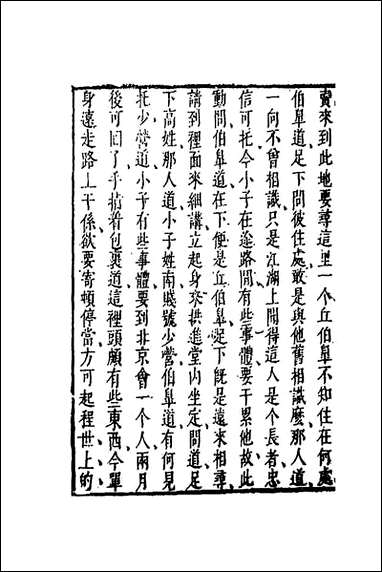 賣來到此地要尋這里一个丘伯皐不知住在何處
伯皐道足下問彼住處敢是與他舊相識麼那人道
一向不曾相識只是江湖上聞得這人是个長者忠
信可托今小子在途路間有些事體要干累他故此
動問伯皐道在下便是丘伯皐足下旣是遠來相尋
請到裡面來細講立起身來拱進堂內坐定問道足
下高姓那人道小子姓南賤號少營伯皐道有何見
托少營道小子有些事體要到北京會一个人兩月
後可囘了手指着包裹道這裡頭頗有些東西今單
身遠走路上干係欲要寄頓停當方可起程世上的